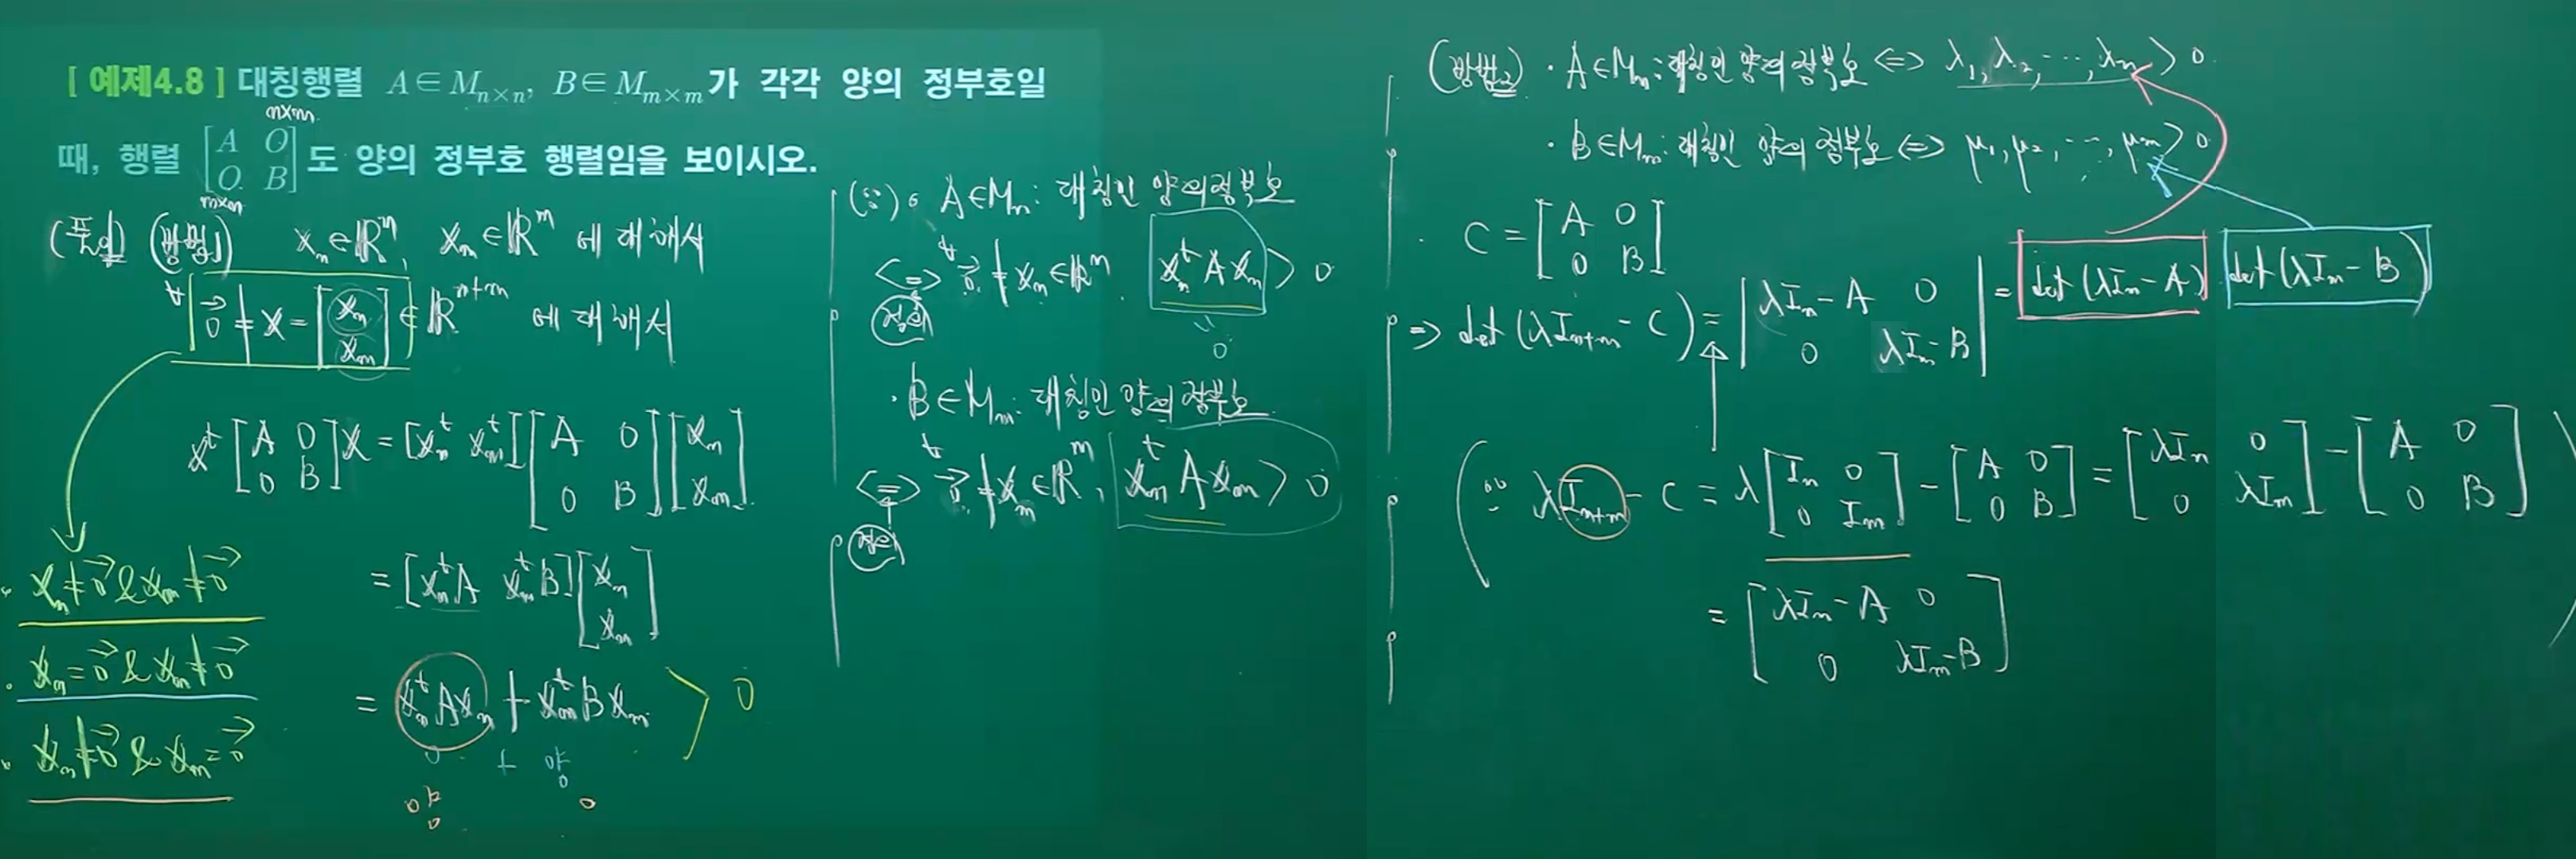 [ 예제4.8 ] 대칭행렬 A∈M_{n×n}, B∈M_{m×m}가 각각 양의 정부호일
n×m
때, 행렬 [A O; O B]도 양의 정부호 행렬임을 보이시오.
m×n
(풀이) (방법1) x_n∈ℝ^n, x_m∈ℝ^m 에 대해서
∀ 0⃗≠x=[x_n; x_m]∈ℝ^{n+m} 에 대해서
x^t[A 0; 0 B]x=[x_n^t x_m^t][A 0; 0 B][x_n; x_m]
=[x_n^tA x_m^tB][x_n; x_m]
=x_n^tAx_n+x_m^tBx_m > 0
0 + 양
양 0
· x_n≠0⃗ & x_m≠0⃗
· x_n=0⃗ & x_m≠0⃗
· x_n≠0⃗ & x_m=0⃗
(∵)· A∈M_n: 대칭인 양의정부호
⇔ ∀ 0⃗≠x_n∈ℝ^n, x_n^tAx_n > 0
정의
0
· B∈M_m: 대칭인 양의 정부호
⇔ ∀ 0⃗≠x_m∈ℝ^m, x_m^tAx_m > 0
정의
(방법2) · A∈M_n: 대칭인 양의 정부호 ⇔ λ_1, λ_2, ⋯, λ_n > 0
· B∈M_m: 대칭인 양의 정부호 ⇔ μ_1, μ_2, ⋯, μ_m > 0
· C=[A 0; 0 B]
⇒ det(λI_{n+m}-C)=|λI_n-A 0; 0 λI_m-B|=det(λI_n-A) det(λI_m-B)
(∵ λI_{n+m}-C=λ[I_n 0; 0 I_m]-[A 0; 0 B]=[λI_n 0; 0 λI_m]-[A 0; 0 B]
=[λI_n-A 0; 0 λI_m-B])